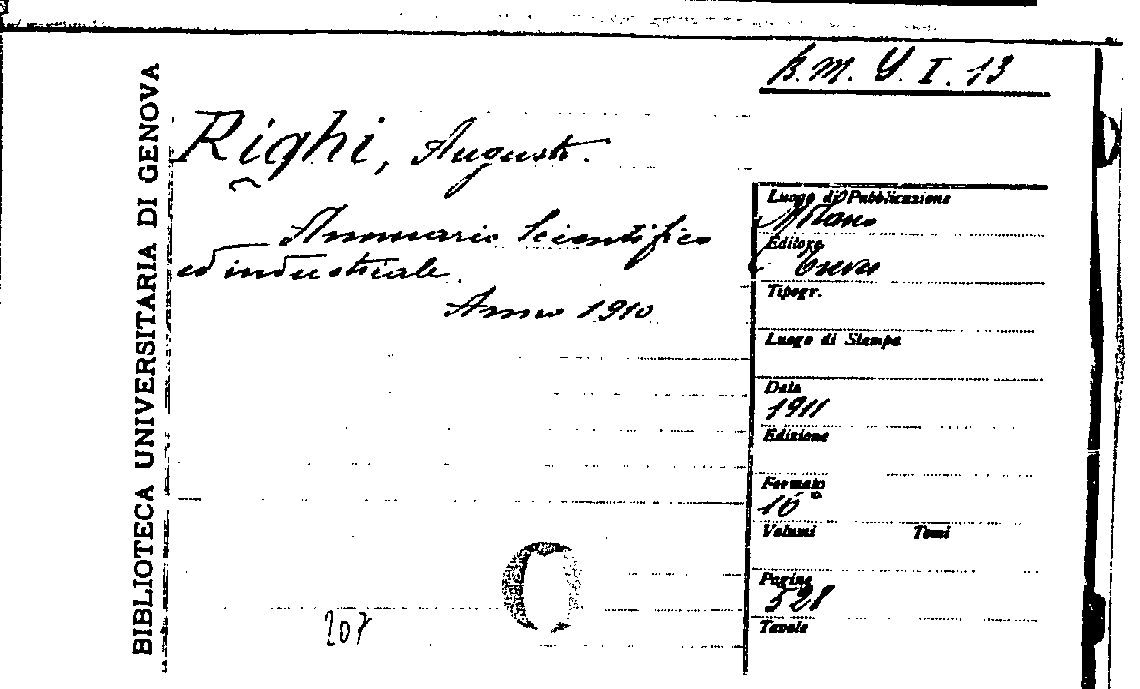 B.M. Y. I. 13
BIBLIOTECA UNIVERSITARIA DI GENOVA
Righi, Augusto.
Annuario Scientifico
ed industriale.
Anno 1910
Luogo di Pubblicazione
Milano
Editore
Treves
Tipogr.
Luogo di Stampa
Data
1911
Edizione
Formato
16°
Volumi Tomi
Pagine
528
Tavole
207